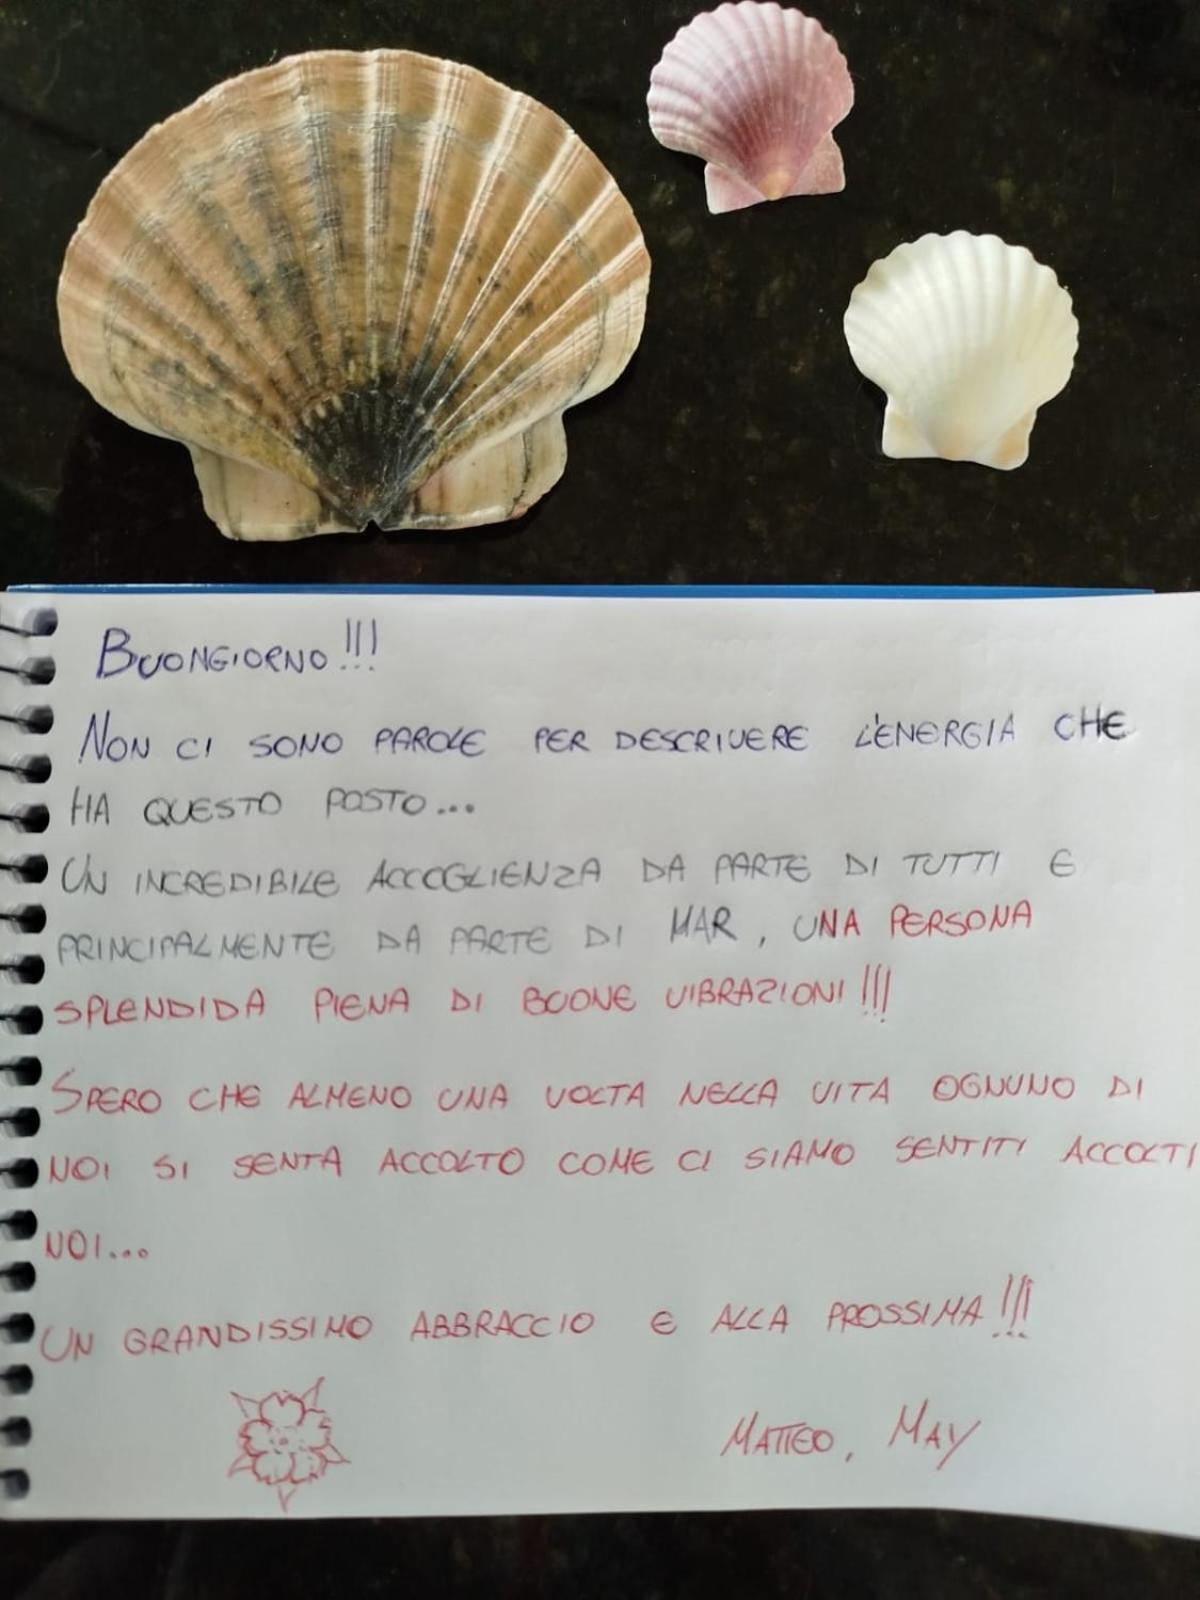 BUONGIORNO!!!
NON CI SONO PAROLE PER DESCRIVERE L'ENERGIA CHE
HA QUESTO POSTO...
UN INCREDIBILE ACCOGLIENZA DA PARTE DI TUTTI E
PRINCIPALMENTE DA PARTE DI MAR, UNA PERSONA
SPLENDIDA PIENA DI BUONE VIBRAZIONI!!!
SPERO CHE ALMENO UNA VOLTA NELLA VITA OGNUNO DI
NOI SI SENTA ACCOLTO COME CI SIAMO SENTITI ACCOLTI
NOI...
UN GRANDISSIMO ABBRACCIO E ALLA PROSSIMA!!!
MATTEO, MAY